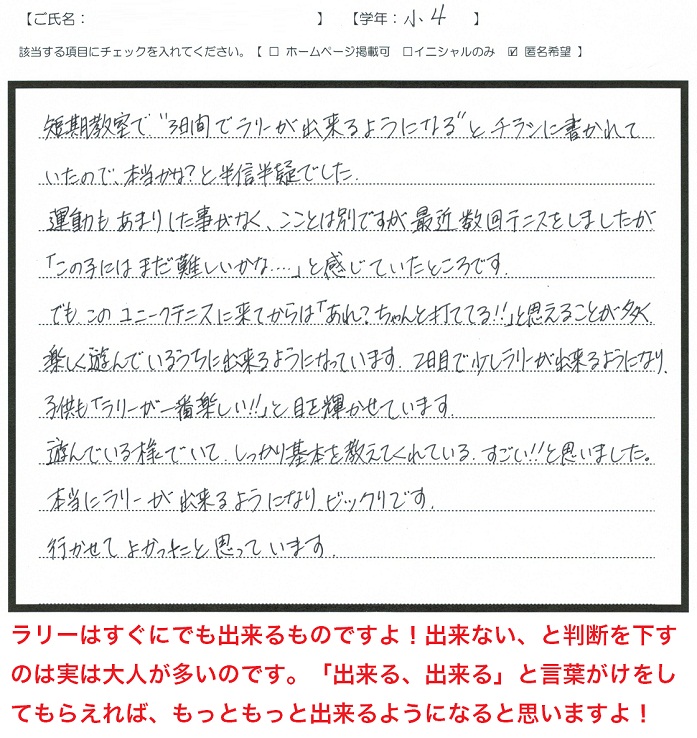 【ご氏名： 】 【学年：小4 】
該当する項目にチェックを入れてください。【 □ ホームページ掲載可 □イニシャルのみ ☑ 匿名希望 】
短期教室で"3日間でラリーが出来るようになる"とチラシに書かれて
いたので、本当かな?と半信半疑でした.
運動もあまりした事がなく、こことは別ですが最近数回テニスをしましたが
「この子にはまだ難しいかな……」と感じていたところです.
でも、このユニークテニスに来てからは「あれ?ちゃんと打ててる!!」と思えることが多く、
楽しく遊んでいるうちに出来るようになっています. 2日目で少しラリーが出来るようになり、
子供も「ラリーが一番楽しい!!」と目を輝かせています.
遊んでいる様でいて、しっかり基本を教えてくれている、すごい!!と思いました。
本当にラリーが出来るようになり、ビックリです.
行かせてよかったと思っています.
ラリーはすぐにでも出来るものですよ！出来ない、と判断を下す
のは実は大人が多いのです。「出来る、出来る」と言葉がけをし
てもらえれば、もっともっと出来るようになると思いますよ！